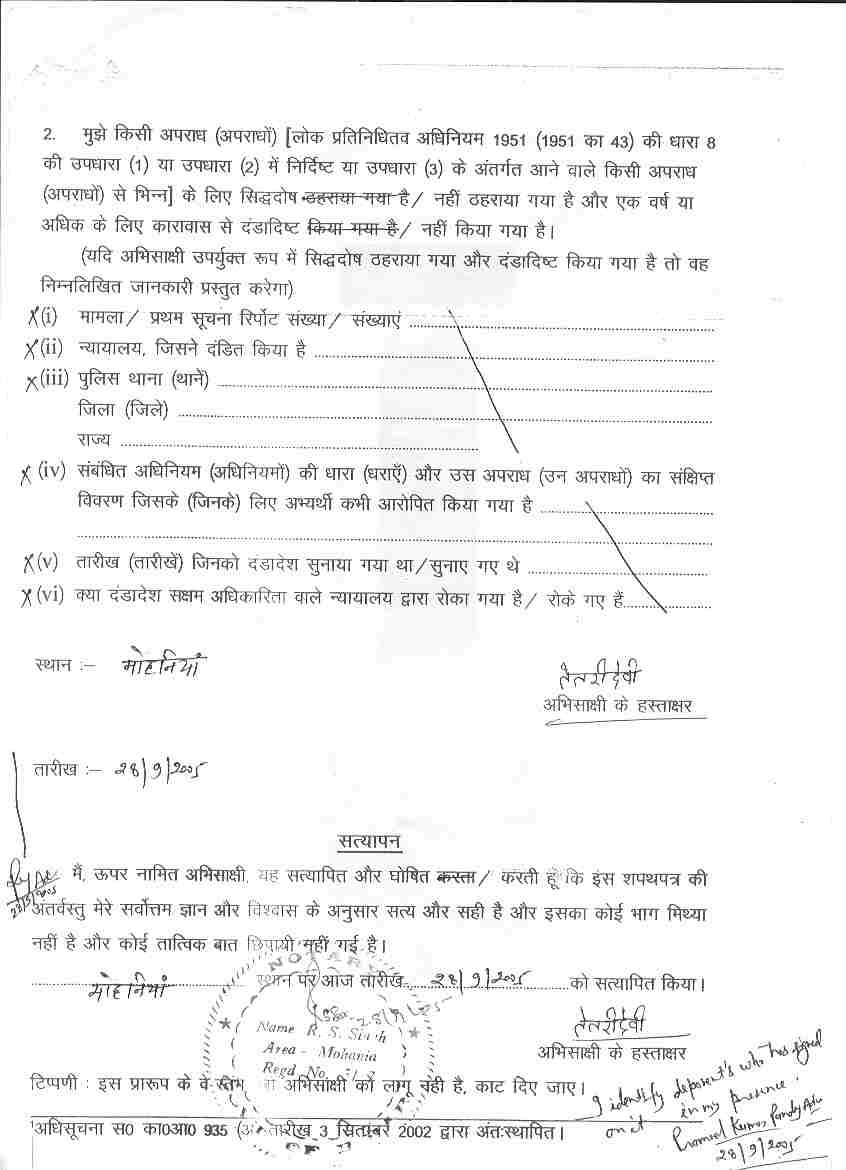 2. मुझे किसी अपराध (अपराधों) [लोक प्रतिनिधितव अधिनियम 1951 (1951 का 43) की धारा 8
की उपधारा (1) या उपधारा (2) में निर्दिष्ट या उपधारा (3) के अंतर्गत आने वाले किसी अपराध
(अपराधों) से भिन्न] के लिए सिद्धदोष ठहराया गया है/ नहीं ठहराया गया है और एक वर्ष या
अधिक के लिए कारावास से दंडादिष्ट किया गया है/ नहीं किया गया है।
(यदि अभिसाक्षी उपर्युक्त रूप में सिद्धदोष ठहराया गया और दंडादिष्ट किया गया है तो वह
निम्नलिखित जानकारी प्रस्तुत करेगा)
x(i) मामला/ प्रथम सूचना रिर्पोट संख्या/ संख्याएं
x(ii) न्यायालय, जिसने दंडित किया है
x(iii) पुलिस थाना (थानें)
जिला (जिले)
राज्य
x(iv) संबंधित अधिनियम (अधिनियमों) की धारा (धराएँ) और उस अपराध (उन अपराधों) का संक्षिप्त
विवरण जिसके (जिनके) लिए अभ्यर्थी कभी आरोपित किया गया है
x(v) तारीख (तारीखें) जिनको दंडादेश सुनाया गया था/सुनाए गए थे
x(vi) क्या दंडादेश सक्षम अधिकारिता वाले न्यायालय द्वारा रोका गया है/ रोके गए हैं
स्थान :– मोहनियाँ
तेतरी देवी
अभिसाक्षी के हस्ताक्षर
तारीख :– 28/9/2005
सत्यापन
मैं, ऊपर नामित अभिसाक्षी, यह सत्यापित और घोषित करता/ करती हूँ कि इस शपथपत्र की
अंतर्वस्तु मेरे सर्वोत्तम ज्ञान और विश्वास के अनुसार सत्य और सही है और इसका कोई भाग मिथ्या
नहीं है और कोई तात्विक बात छिपायी नहीं गई है।
मोहनियां स्थान पर आज तारीख 28/9/2005 को सत्यापित किया।
NOTARY
Name R. S. Singh
Area - Mohania
Regd No.
तेतरी देवी
अभिसाक्षी के हस्ताक्षर
टिप्पणी : इस प्रारूप के वे स्तंभ अभिसाक्षी को लागू नही है, काट दिए जाए।
I identify deponent's who has signed
on it in my presence.
Pramod Kumar Pandey Adv
28/9/2005
अधिसूचना स0 का0आ0 935 तारीख 3 सितंबर 2002 द्वारा अंतःस्थापित।